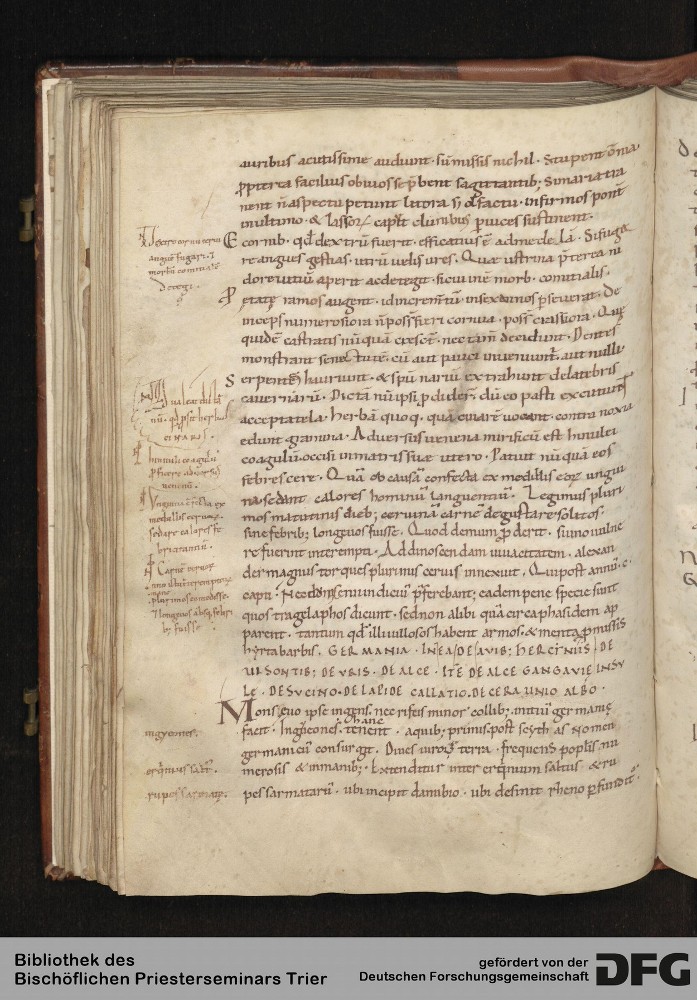 auribus acutissime audiunt · sūmissis nichil · Stupent om̄ia ·
ꝓpterea facilius obvios se p̄bent sagittantib; Si maria tra
nent n̄ aspectu petunt litora sʒ olfactu · infirmos ponunt
in ultimo · & lassorꝝ capita clunibus ꝑ vices sustinent ·
E cornib · qd̄ dextrū fuerit · efficatius ē ad medelā · Si fuga
re angues gestias · utrū uelis ures · Quæ ustrina p̄terea ni
dore uitiū aperit ac detegit · si cui inē morb · comitialis ·
P etate ramos augent · id incrementū in sexennos ꝑseverat · De
inceps numerosiora n̄ poss̄ fieri cornua · poss̄ crassiora · Quę
quidē castratis nūquā cresc̄t · nec tam̄ decidunt · Dentes
monstrant senectutē · cū aut pauci inveniunt̄ · aut nulli ·
S erpentes hauriunt · & spū nariū extrahunt de latebris
cavernarū · Dictā nū ipsi ꝓdider̄ · dū eo pasti excutiunt
accepta tela · herbā quoq · quā cinarē vocant · contra noxia
edunt gramina · Adversus venena mirificū est hinulei
coagulū · occisi in matris suæ utero · Patuit nūquā eos
febrescere · Quā ob causā confecta ex medullis eorꝝ ungui
na · sedant calores hominū languentiū · Legimus pluri
mos matutinis dieb; cervinā carnē degustare solitos ·
sine febrib; longevos fuisse · Quod demum ꝓderit · si uno vulne
re fuerint interempti · Ad dinoscendam vivacitatem · alexan
der magnus torques plurimis cervis innexuit · Qui post annū · c ·
capti · Necdum senii indiciū p̄ferebant; eadem pene specie sunt
quos tragelaphos dicunt · sed non alibi quā circa phasidem ap
parent · tantum qd̄ illi villosos habent armos · & menta ꝓmissis
hyrta barbis · GERMANIA · IN EA DE AVIB; HERCINIIS · DE
VISONTIB; DE VRIS · DE ALCE · ITĒ DE ALCE GANGAVIE INSV
LE · DE SVCINO · DE LAPIDE CALLAICO · DE CERAVNIO ALBO ·
Mons sevo ipse ingens · nec rifeis minor collib; initiū germanię
facit · hanc Ingveones tenent · a quib; primis post scythas nomen
germanicū consurgit · Dives viris terra · frequens poplis · nu
merosis & inmanib; Extenditur inter ercinium saltus · & ru
pes sarmatarū · ubi incipit danubio · ubi desinit rheno ꝑfunditur ·
N Dextro cornu cervi
angues fugari · &
morbū comitialē
detegi ·
herba
CINARE ·
hinnuli coagulū
venenū ·
Unguina c̄fecta ex
medullis cervorꝝ
sedare calores fe
bricitantiū ·
longevos absq; febri
b; fuisse ·
ingveones ·
ercinius salt ·
rupes sarmatarꝝ ·
Bibliothek des
Bischöflichen Priesterseminars Trier
gefördert von der
Deutschen Forschungsgemeinschaft
DFG